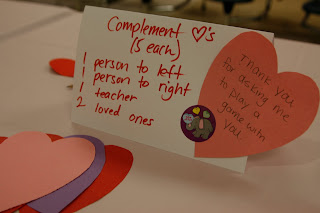 Complement ♡'s
(5 each)
1 person to left
1 person to right
1 teacher
2 loved ones
Thank you
for asking me
to play a
game with
you